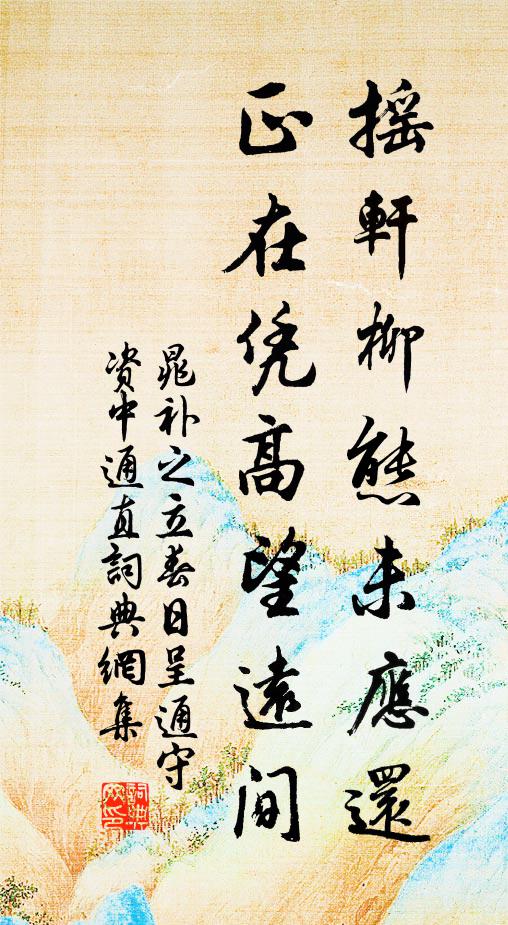 摇軒柳態未應還
正在凭高望遠間
晁补之立春日呈通守
资中通直詞典網集